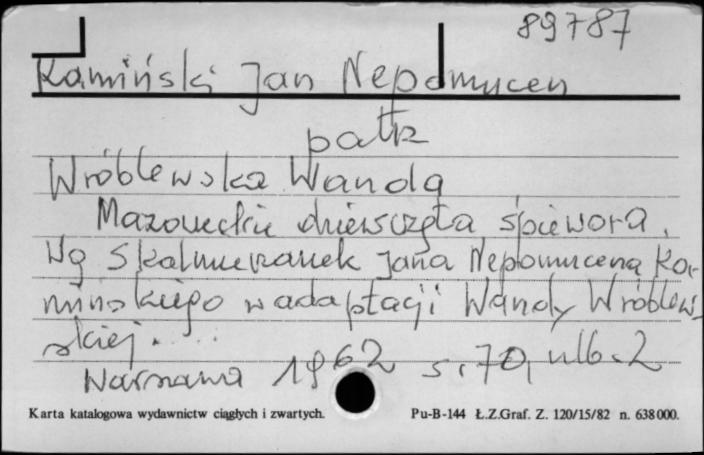 89787
Kamiński Jan Nepomucen
patrz
Wróblewska Wanda
Mazowieckie dziewczęta śpiewora,
Wg Skalmierzanek Jana Nepomucena Ka-
mińskiego w adaptacji Wandy Wróblew-
skiej. ...
Warszawa 1962 s. 70, nlb. 2
Karta katalogowa wydawnictw ciągłych i zwartych.
Pu-B-144 Ł.Z.Graf. Z. 120/15/82 n. 638000.